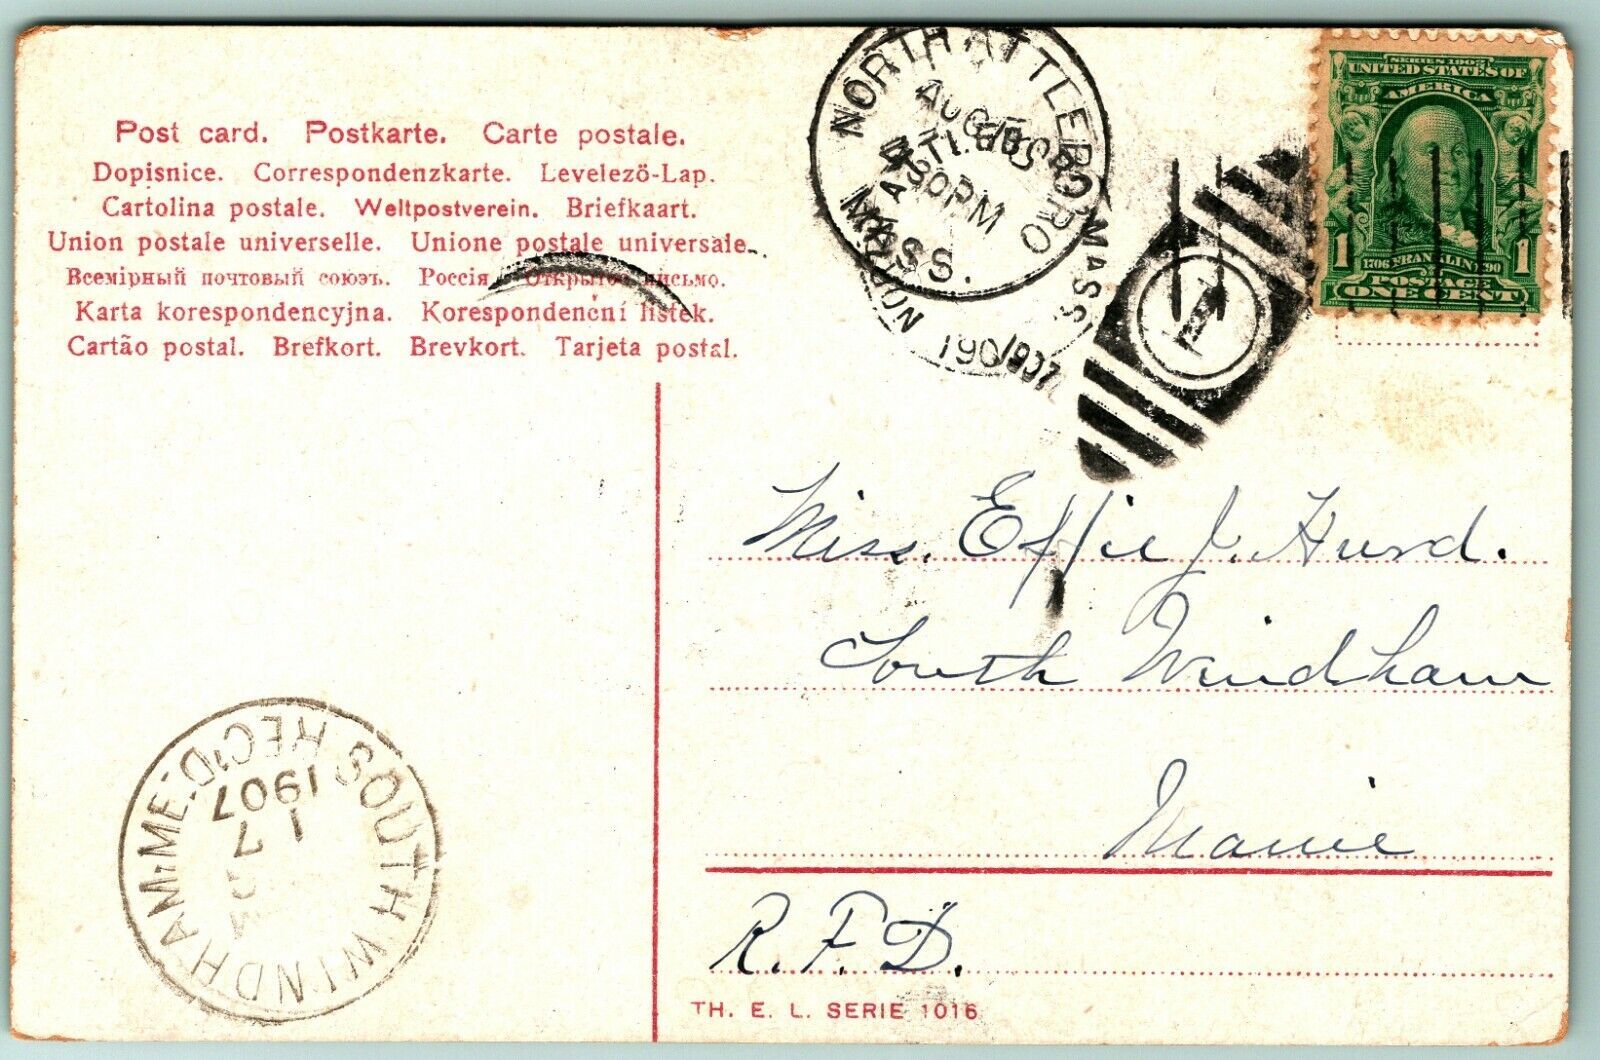 Post card. Postkarte. Carte postale.
Dopisnice. Correspondenzkarte. Levelezö-Lap.
Cartolina postale. Weltpostverein. Briefkaart.
Union postale universelle. Unione postale universale.
Всемірный почтовый союзъ. Россія. Открытое письмо.
Karta korespondencyjna. Korespondenční listek.
Cartão postal. Brefkort. Brevkort. Tarjeta postal.
NORTH ATTLEBORO
MASS.
AUG
30 PM
NORTH ATTLEBORO MASS.
1907
1
SERIES 1902
UNITED STATES OF
AMERICA
1 1
1706 FRANKLIN 1790
POSTAGE
ONE CENT
Miss. Effie J. Hurd.
South Windham
Maine
R.F.D.
TH. E. L. SERIE 1016
SOUTH WINDHAM-ME. REC'D.
1907